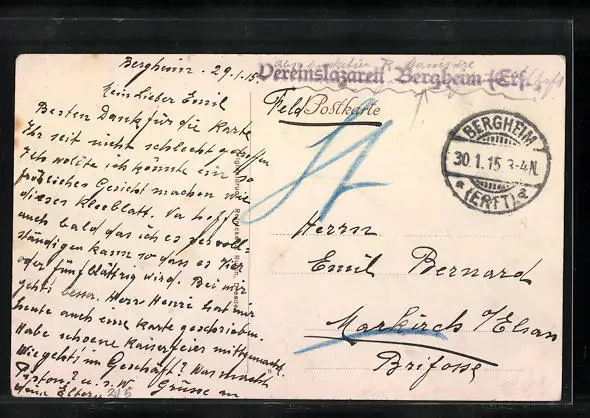 Bergheim, 29.1.15.
Mein Lieber Emil
Besten Dank für die Karte
Ihr seit nicht schlecht getroffen
Ich wollte ich könnte ein so
fröhliches Gesicht machen wie
dieses Kleeblatt. Ja hoffe
auch bald das ich es vervoll=
ständigen kann so dass es vier
oder fünfblättrig wird. Bei mir
gehts besser. Herr Henri hat mir
heute auch eine Karte geschrieben.
Habe schoene Kaiserfeier mitgemacht.
Wie gehts im Geschäft? Was macht
u.s.w. Grüsse
Vereinslazarett Bergheim (Erft)
Feld Postkarte
BERGHEIM
30.1.15.3-4N.
* (ERFT) a
Herrn
Emil Bernard
Markirch /Elsas
Brifosse